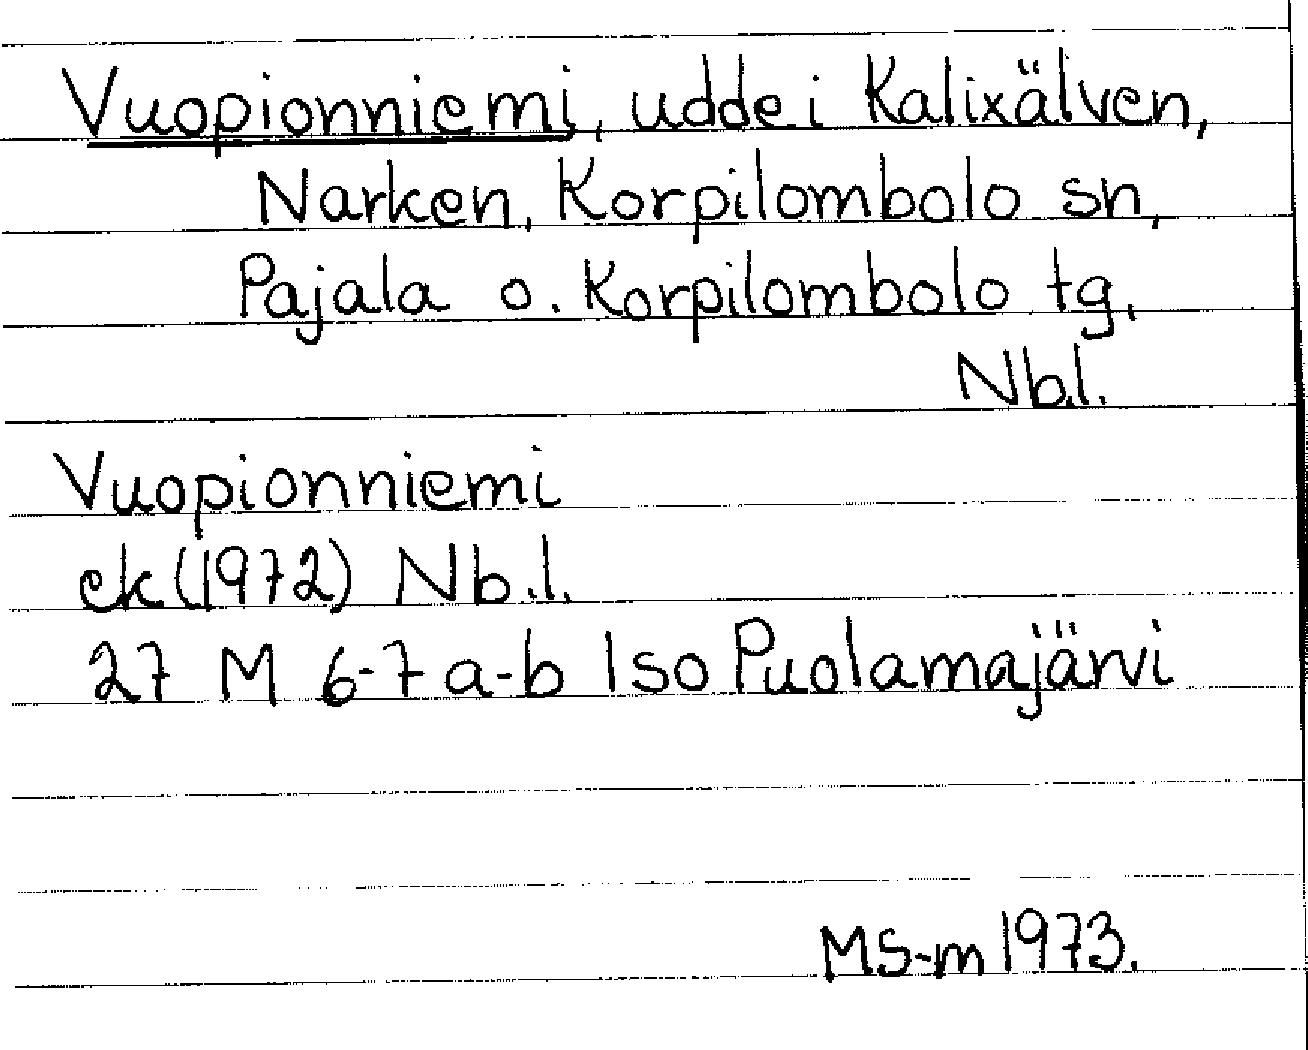 Vuopionniemi, udde i Kalixälven,
Narken, Korpilombolo sn,
Pajala o. Korpilombolo tg,
Nb.l.
Vuopionniemi
ek (1972) Nb.l.
27 M 6-7 a-b Iso Puolamajärvi
MS-m 1973.